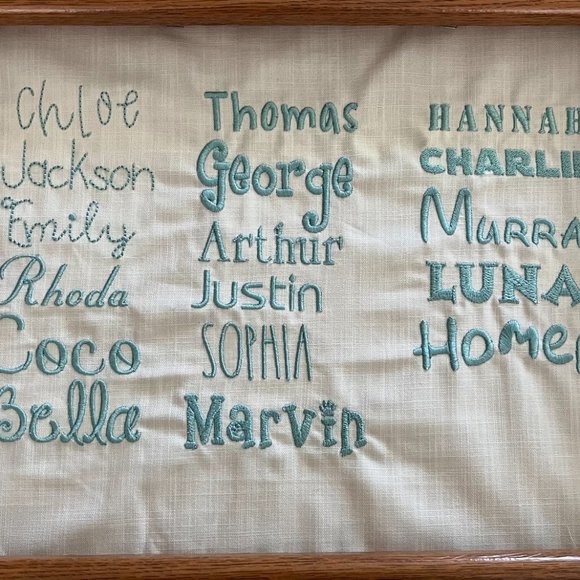 Chloe
Jackson
Emily
Rhoda
Coco
Bella
Thomas
George
Arthur
Justin
SOPHIA
Marvin
HANNAH
CHARLIE
MURRA
LUNA
Home